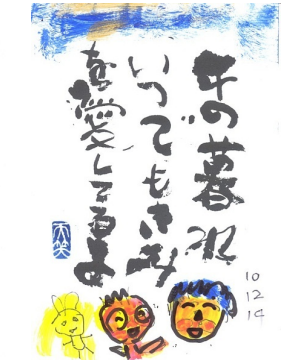 年の暮れ
いつでもきみ
を愛してるよ
天笑
10
12
14